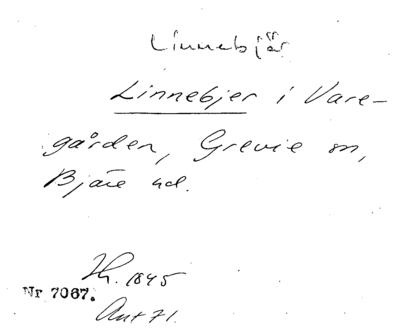 Linnebjär
Linnebjer i Vare-
gården, Grevie sn,
Bjäre hd.
Th. 1845
Nr 7067.
Ant 71.